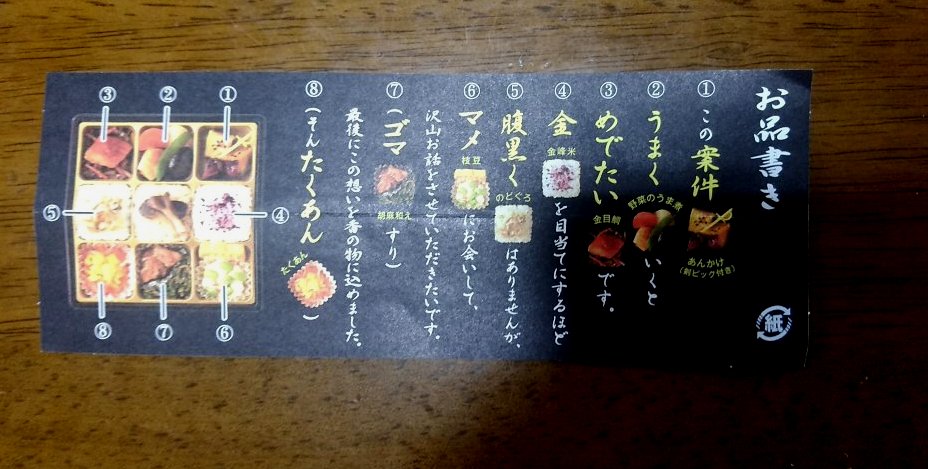 お品書き
① この案件
あんかけ
(剣ピック付き)
② うまく
野菜のうま煮
いくと
③ めでたい
金目鯛
です。
④ 金
金峰米
を目当てにするほど
⑤ 腹黒く
のどぐろ
はありませんが、
⑥ マメ
枝豆
にお会いして、
沢山お話をさせていただきたいです。
⑦ (ゴマ
胡麻和え
すり)
最後にこの想いを香の物に込めました。
⑧ (そんたくあん
たくあん
)
紙
③ ② ①
⑤ ④
⑧ ⑦ ⑥